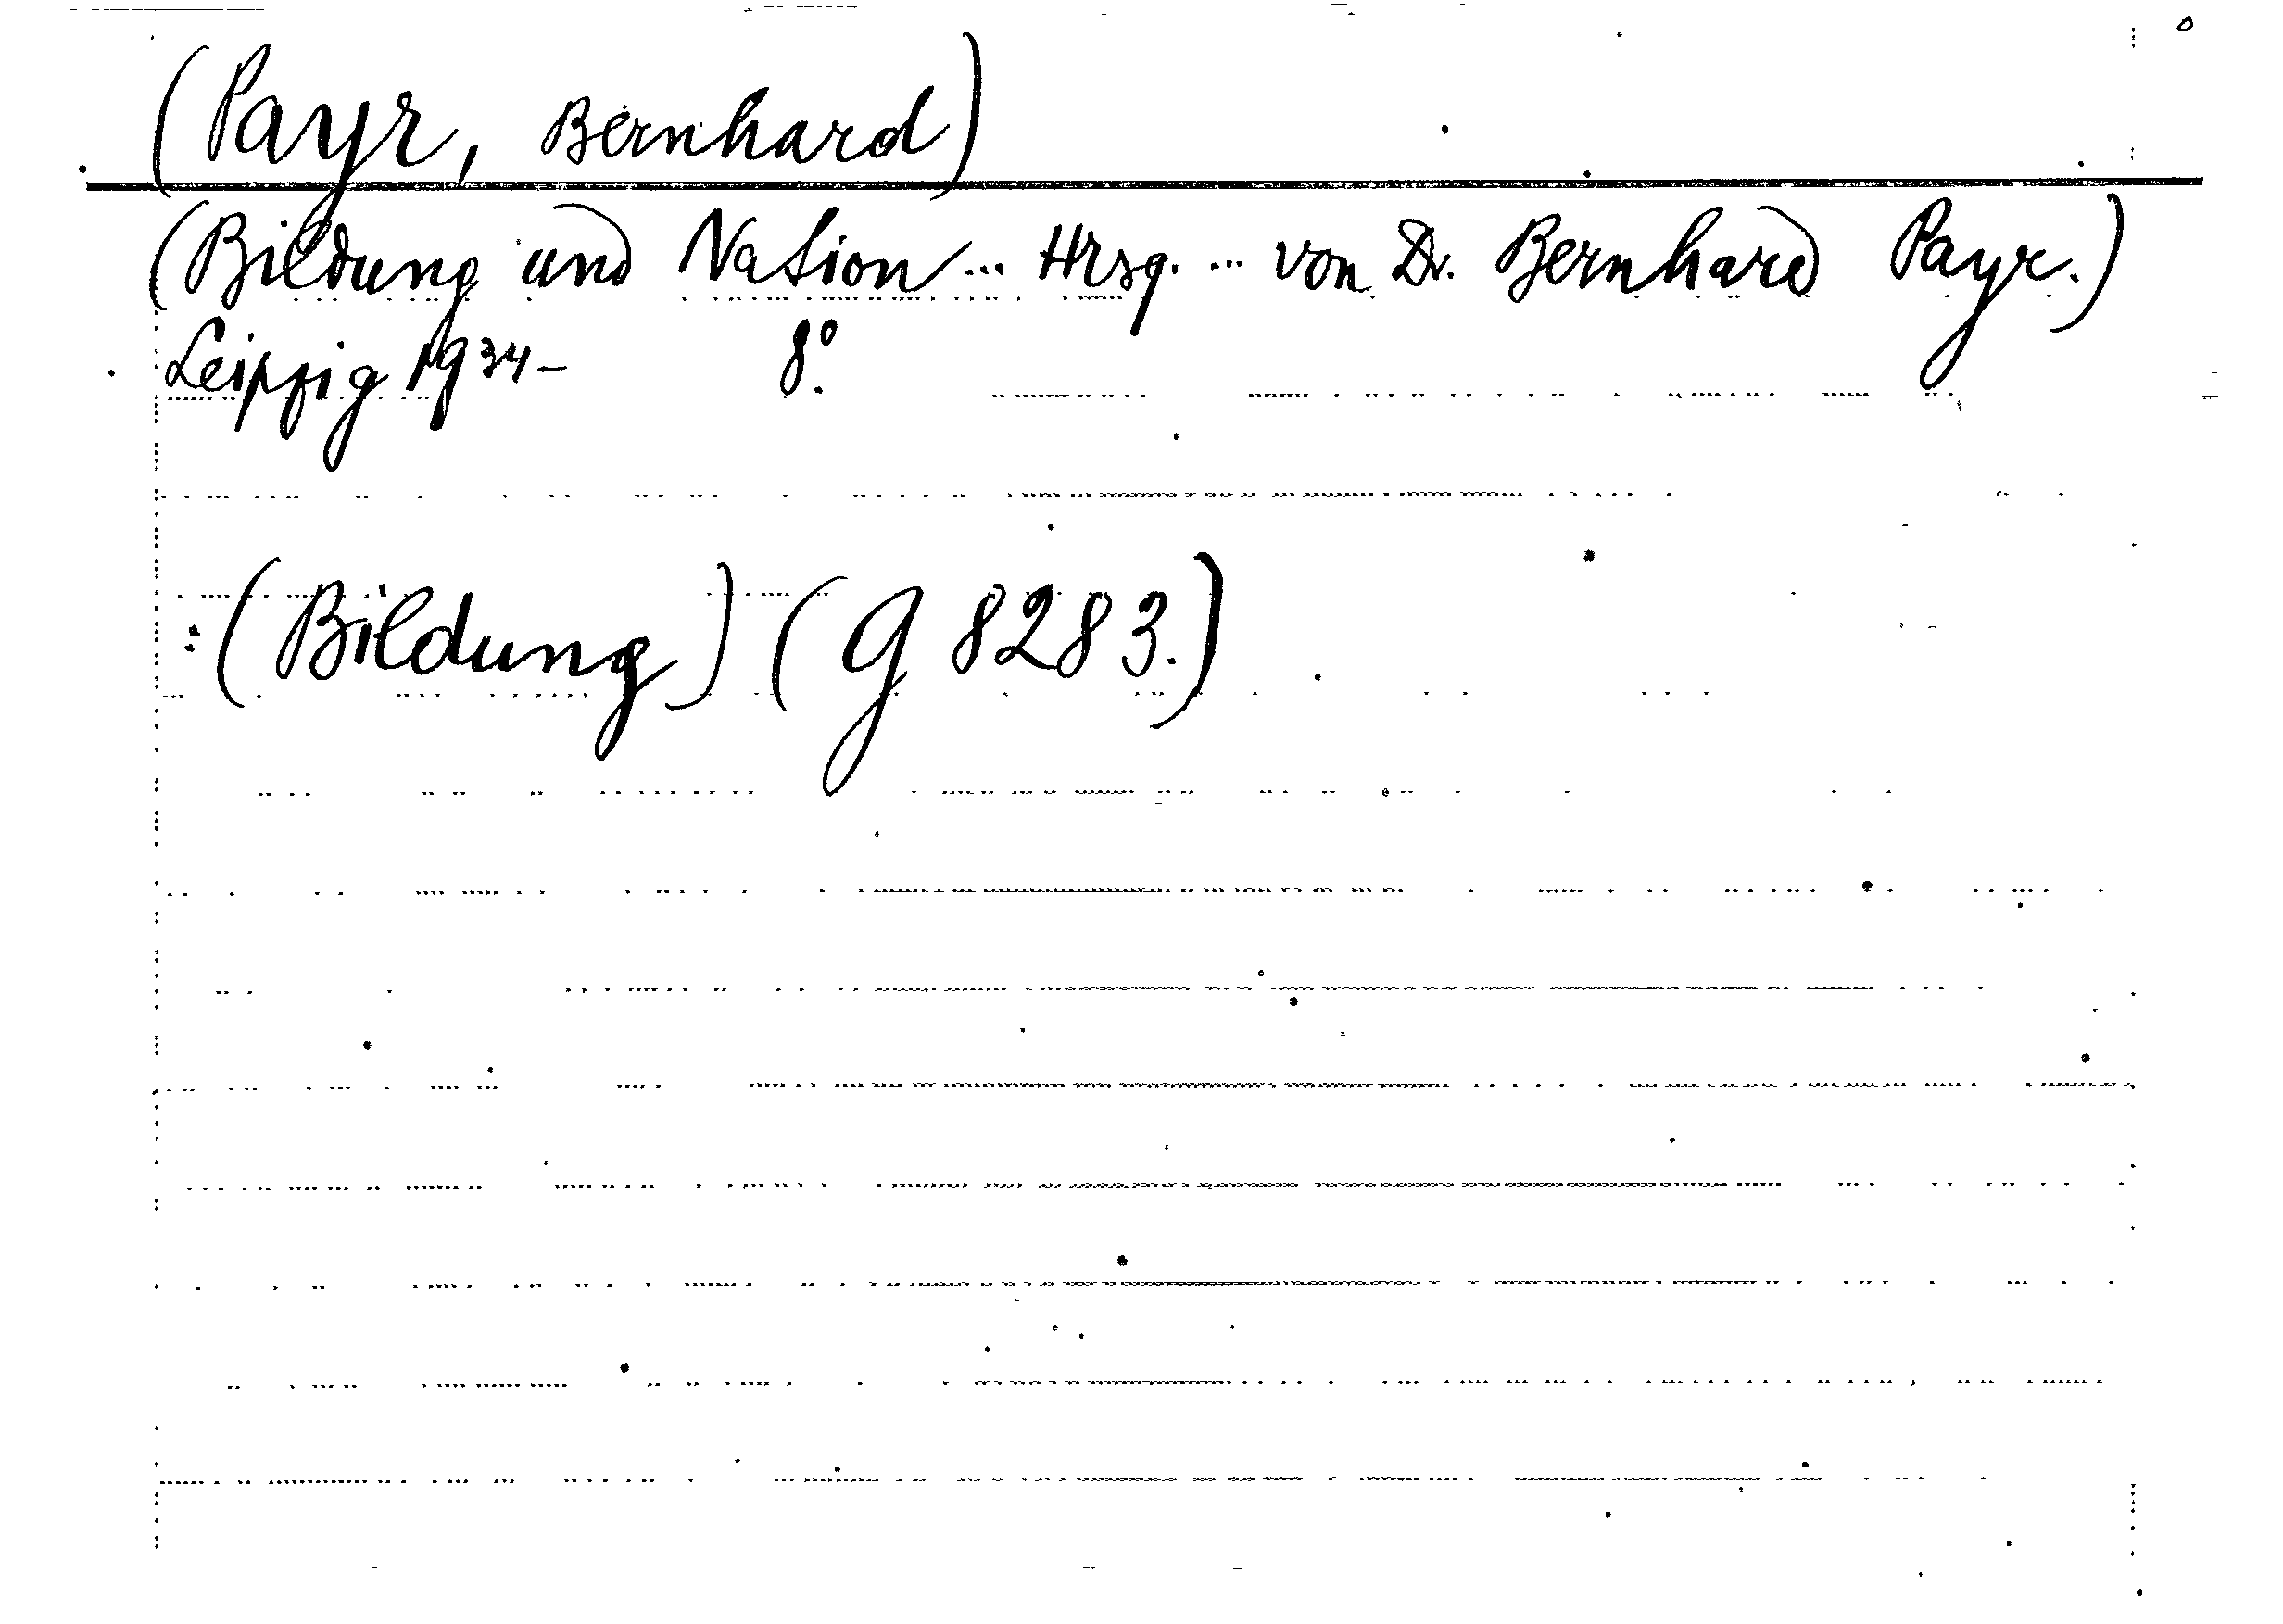 (Payr, Bernhard)
(Bildung und Nation ... Hrsg. ... von Dr. Bernhard Payr.)
Leipzig 1934- 8°.
:(Bildung) (g 8283.)